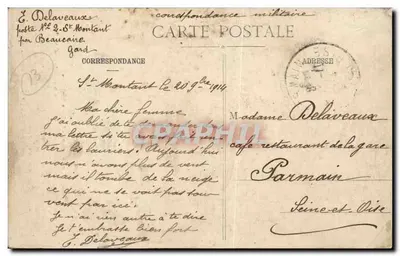 E. Delaveaux
poste Nº2 G. St Montant
par Beaucaire
Gard
correspondance militaire
CARTE POSTALE
CORRESPONDANCE
ADRESSE
13
St Montant le 20 9bre 1914
Ma chère femme
J'ai oublié de te dire
ma lettre si tu
trer les lauriers. Aujourd'hui
nous n'avons plus de vent
mais il tombe de la neige
ce qui ne se voit pas sou
vent par ici.
Je n'ai rien autre à te dire
Je t'embrasse bien fort
E. Delaveaux
Madame Delaveaux
café restaurant de la gare
Parmain
Seine et Oise
CPAPHIL